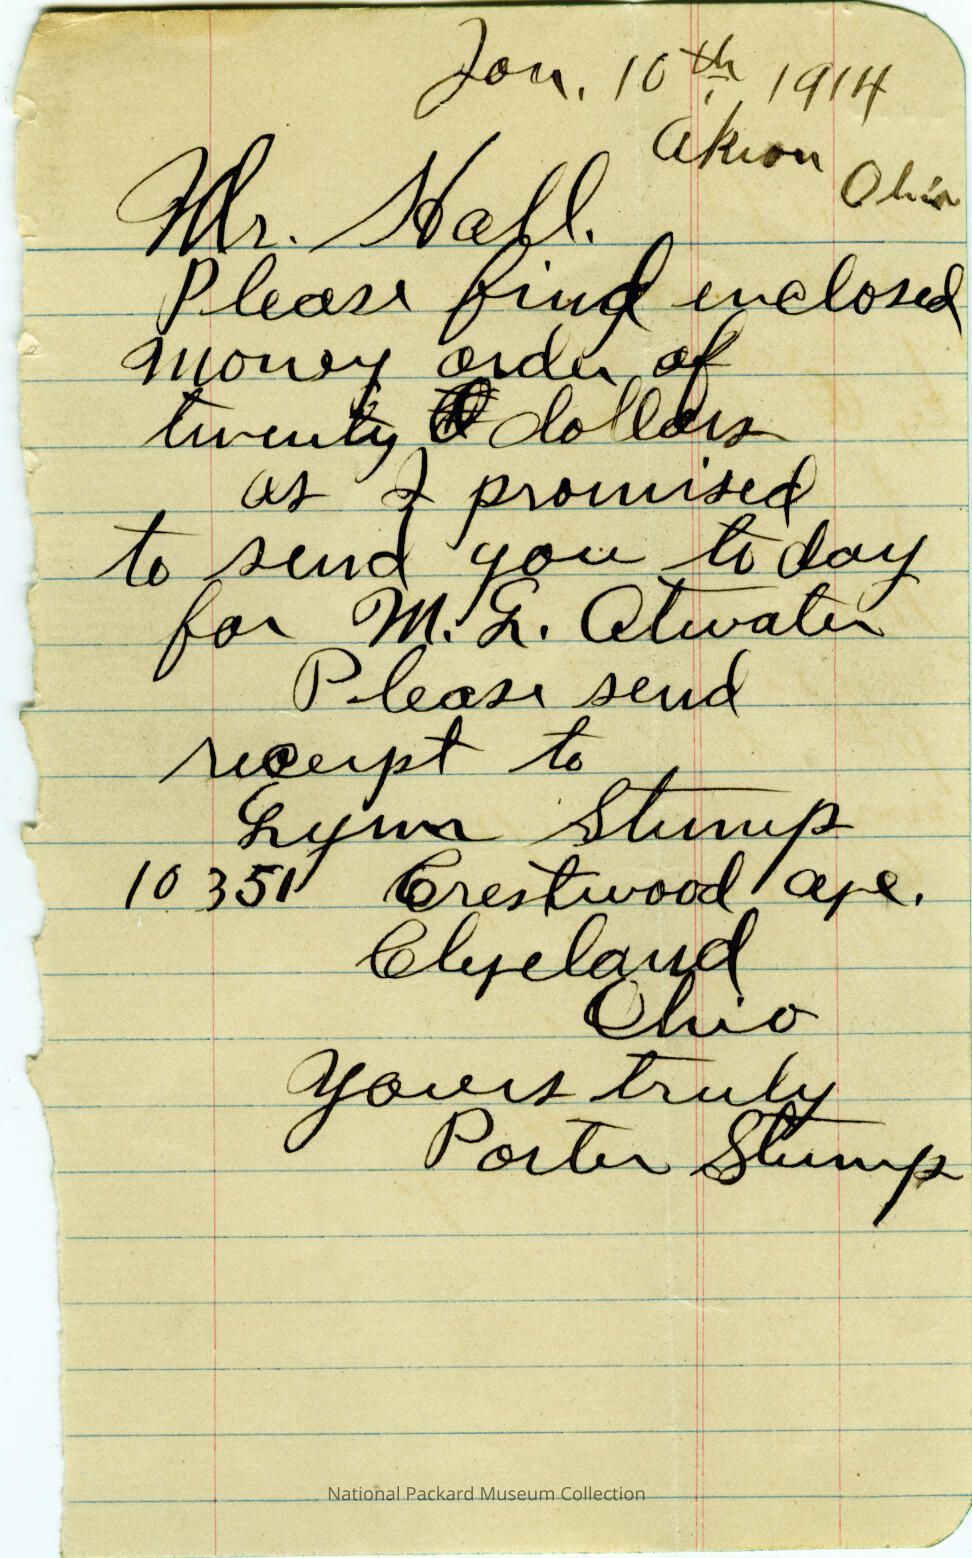 Jan. 10th 1914
Akron
Ohio
Mr. Hall.
Please find enclosed
money order of
twenty dollars
as I promised
to send you today
for M. L. Atwater
Please send
receipt to
Lynn Stump
10351 Crestwood ave.
Cleveland
Ohio
Yours truly
Porter Stump
National Packard Museum Collection